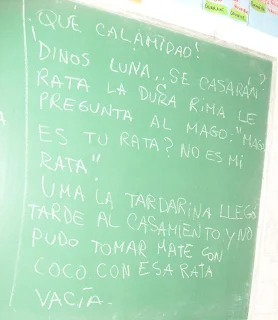 ¡QUÉ CALAMIDAD!
¡DINOS LUNA, ¿SE CASARÁN?
RATA LA DURA RIMA LE
PREGUNTA AL MAGO: "MAGO
ES TU RATA? NO ES MI
RATA".
UMA LA TARDARINA LLEGÓ
TARDE AL CASAMIENTO Y NO
PUDO TOMAR MATE CON
COCO CON ESA RATA
VACÍA.